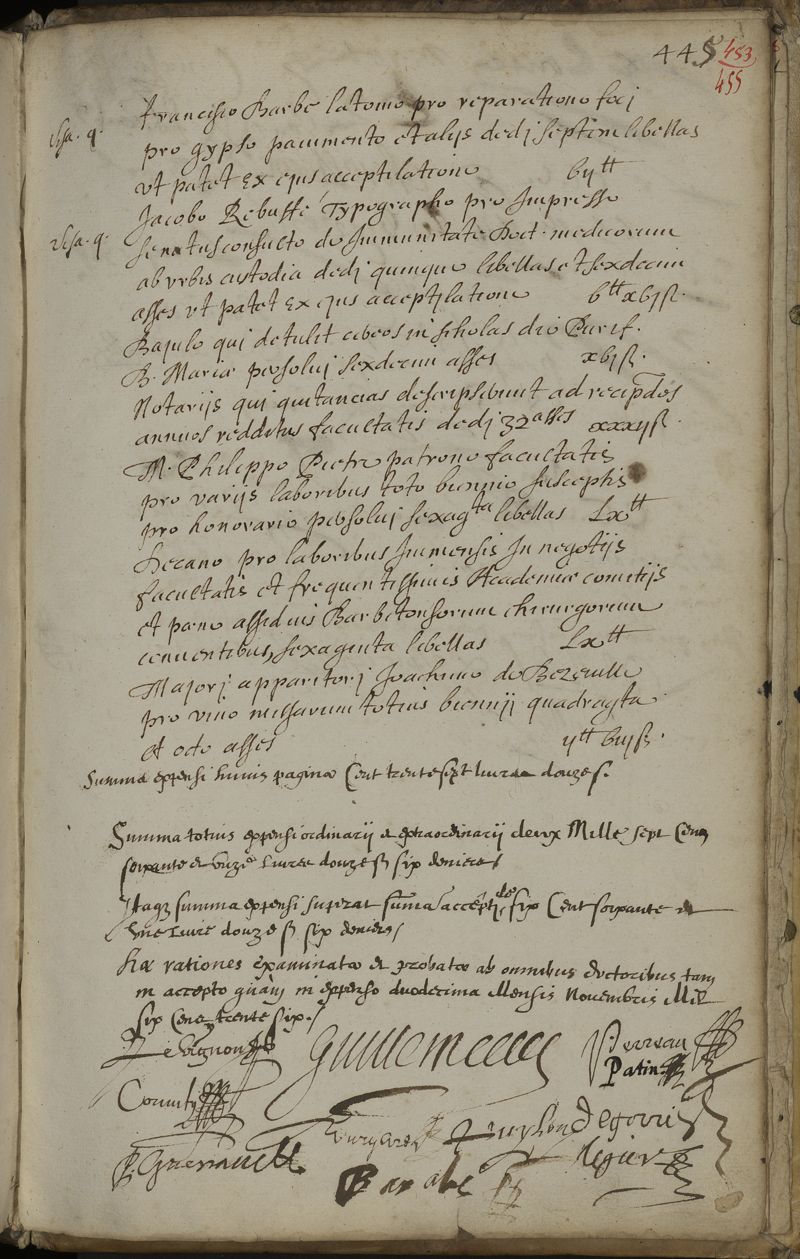 445 453
455
Francisco Barbe latomo pro reparatione foci
pro gypso pavimento et alijs dedi septem libellas
vt patet ex ejus acceptilatione bij tt
Jacobo Rebuffé Typographo pro Impresso
senatusconsulto de Immunitate Doct. medicorum
ab vrbis custodia dedj quinque libellas et sexdecim
asses vt patet ex ejus acceptilatione b tt xbj ß.
Bajulo qui detulit cereos in scholas die Purif.
B. Mariæ persoluj sexdecim asses xbj ß.
Notarijs quj quitancias descripserunt ad recipdos
annuos redditus facultatis dedj 32 asses xxxij ß.
M. Philippo Pietre patrono facultatis
pro varijs laboribus toto biennio susceptis
pro honorario persoluj sexagta libellas Lx tt
Decano pro laboribus Immensis In negotijs
facultatis et frequentissimis Academiæ comitijs
et pæne assiduis Barbitonsorum chirurgorum
conventibus, sexaginta libellas Lx tt
Majorj apparitorj Joachimo de
pro vino missarum totius biennij quadragta
et octo asses ij tt biij ß.
Summa expensi huius paginæ Cent trente sept livres douze s.
Summa totius expensi ordinarij et extraordinarij deux Mille sept Cens
soixante et unze Livres douze ß six deniers
Itaq; summa expensi superat summā accepti de six Cent soixante et
une Livre douze ß six deniers
Hæ rationes examinatæ et probatæ ab omnibus doctoribus tam
in accepto quàm in expenso duodecima Mensis Novembris Mil
six Cens trente six.
Le Vignon
Guillemeau
Perreau
Patin
Barralis